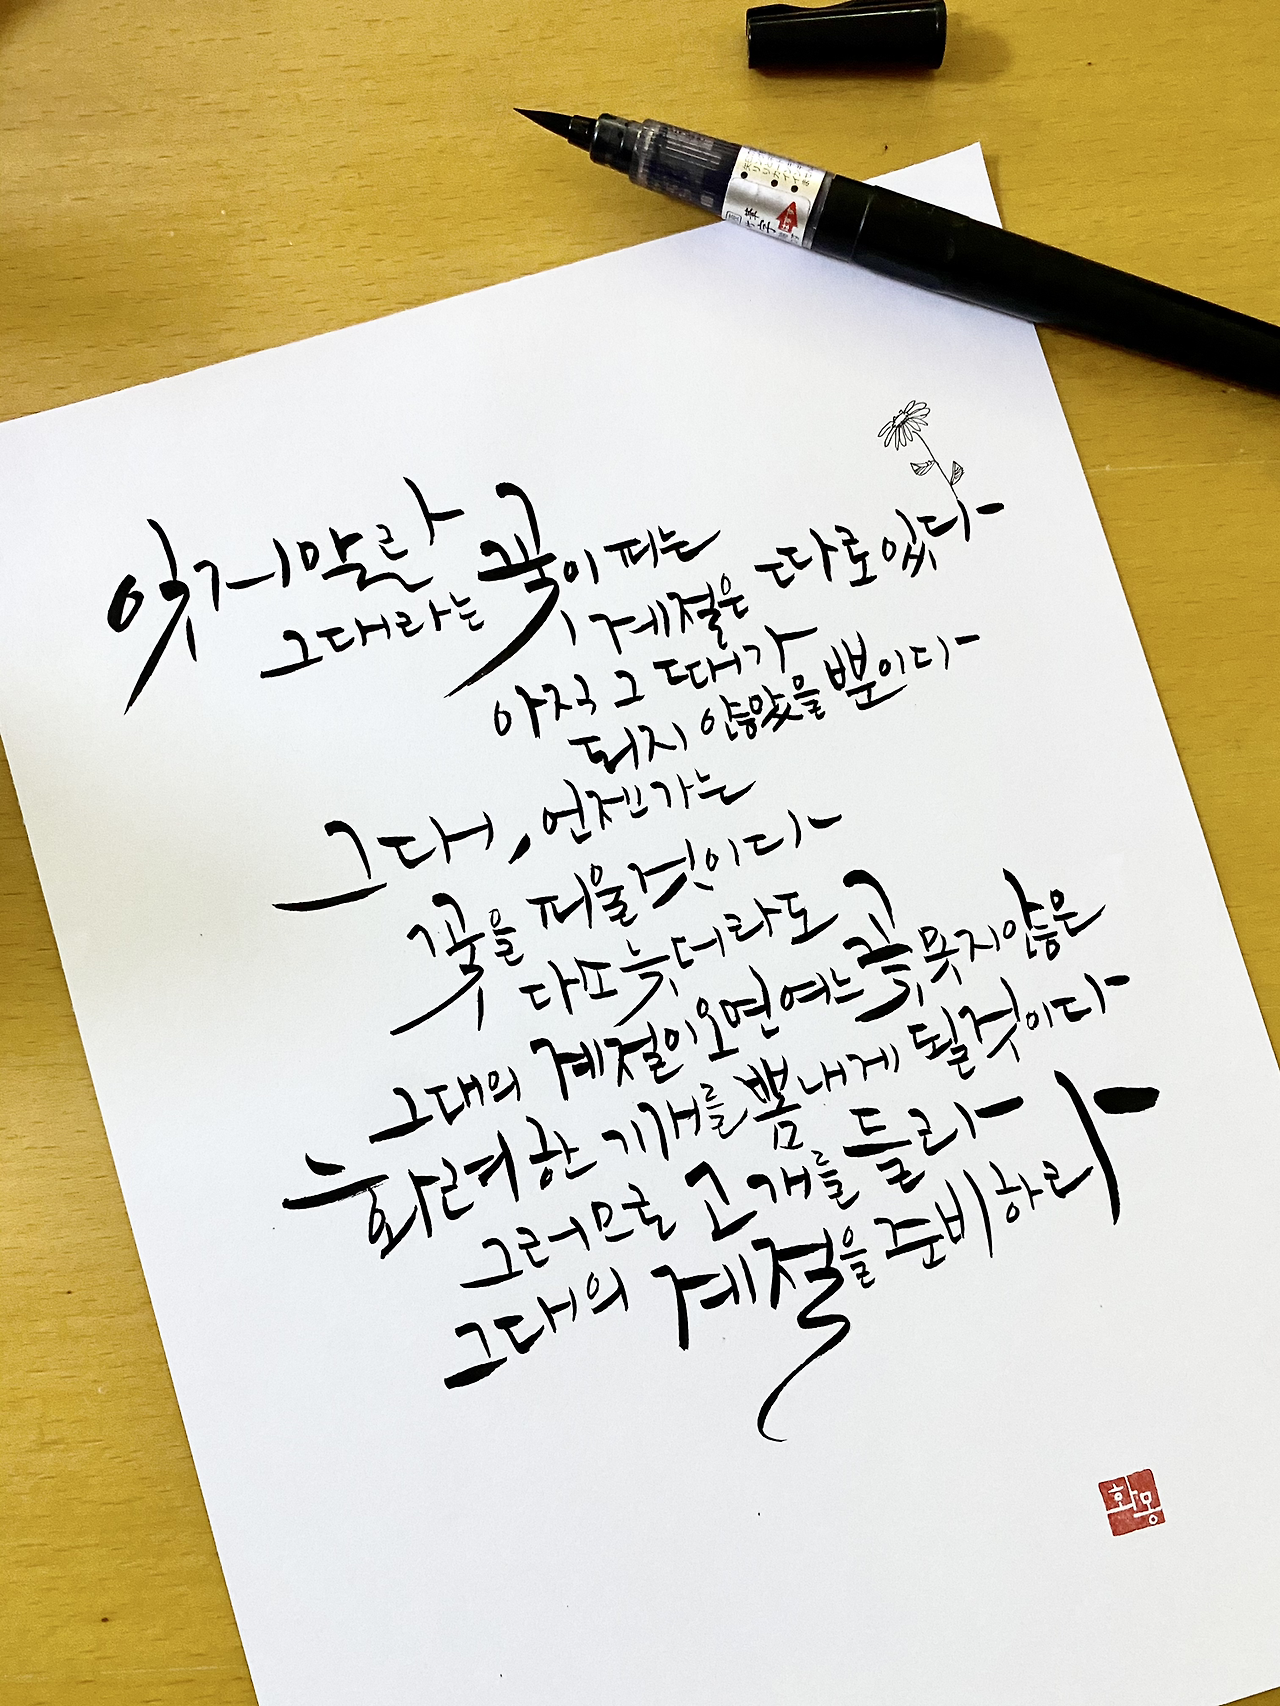 잊지말라
그대라는 꽃이 피는
계절은 따로 있다
아직 그 때가
되지 않았을 뿐이다
그대, 언젠가는
꽃을 피울것이다
다소 늦더라도
그대의 계절이오면 여느 꽃 못지않은
화려한 기개를 뽐내게 될것이다
그러므로 고개를 들라
그대의 계절을 준비하라
화몽